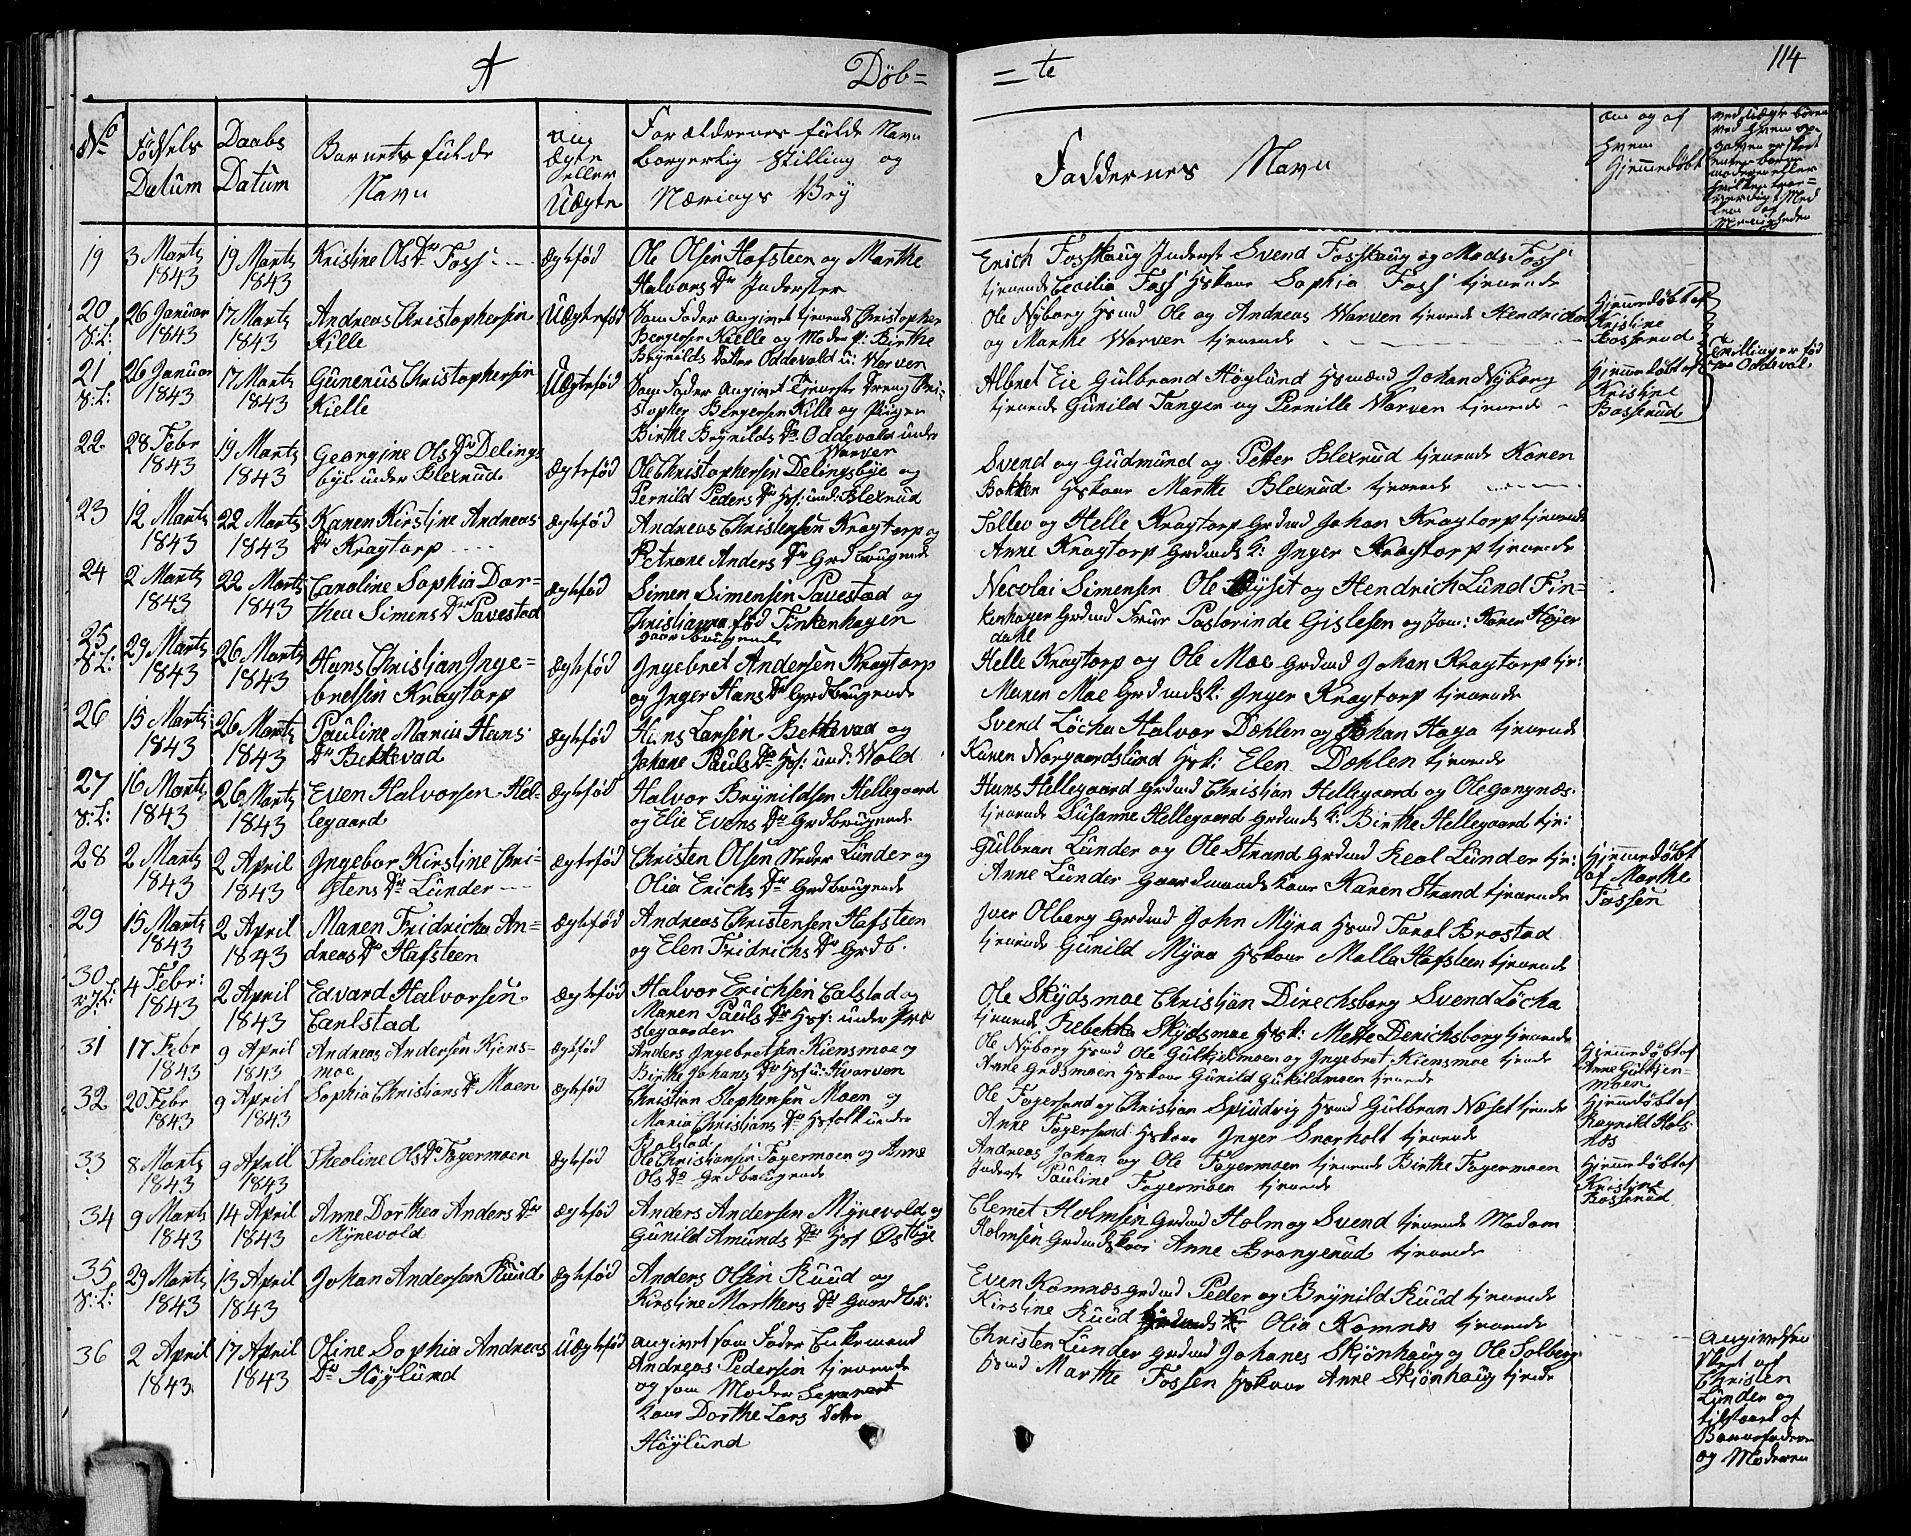 A Døb= = te 114
No
Fødsels Datum
Daabs Datum
Barnets fulde Navn
om Ægte eller Uægte
Forældrenes fulde Navn borgerlig Stilling og Nærings Vey
Faddernes Navn
om og af hvem Hjemmedøbt
19 3 Marts 1843 19 Marts 1843 Kristine Ols Dr Foss ægtefød
Ole Olsen Hafsteen og Marthe
Halvors Dr Inderster
Erich Fosshaug Inderst Svend Fosshaug og Mads Foss
tjenende Cecilia Foss Hskone Sophia Foss tjenende
20 S:L: 26 Januar 1843 17 Marts 1843 Andreas Christophersen Kille Uægtefød
Som Fader Angivet tjenende Christopher
Bergersen Kielle og Moder P: Birthe
Brynilds Datter Oddevald u: Worven
Ole Nyborg Hsmd Ole og Andreas Worven tjenende Hendricka
og Marthe Worven tjenende
Hjemmedøbt af Kristine Bosserud
21 S:L: 26 Januar 1843 17 Marts 1843 Gunerius Christophersen Kielle Uægtefød
Som Fader Angivet Tieneste Dreng Chri-
stopher Bergersen Kille og Pigen
Birthe Brynilds Dr Oddevald under
Worven
Albret Eie Gulbrand Høglund Hsmænd Johan Nyborg
tjenende Gunild Tanger og Pernille Worven tjenende
Hjemmedøbt af Kristine Bosserud
Tvillinger fød paa Oddeval
22 28 Febr 1843 19 Marts 1843 Georgine Ols Dr Delings bye under Blexrud ægtefød
Ole Christophersen Delingsbye og
Pernild Peders Dr Hsf: und: Blexrud
Svend og Gudmund og Petter Blexrud tjenende Karen
Bakken Hskone Marthe Blexrud tjenende
23 12 Marts 1843 22 Marts 1843 Karen Kirstine Andreas Dr Kragtorp ægtefød
Andreas Christensen Kragtorp og
Petrone Anders Dr Grdbrugende
Tollev og Helle Kragtorp Grdmd Johan Kragtorp tjenende
Anne Kragtorp Grdmdsk: Inger Kragtorp tjenende
24 2 Marts 1843 22 Marts 1843 Caroline Sophia Dor- thea Simens Dr Pavestad ægtefød
Simen Simensen Pavestad og
Christianna fød Finkenhagen
gaardbrugende
Necolai Simensen Ole Øysit og Hendrich Lund Fin-
kenhagen Grdmd Frue Pastorinde Gislesen og Jom: Karen Høyer
dahl
25 S:L: 29 Marts 1843 26 Marts 1843 Hans Christian Inge- bretsen Kragtorp ægtefød
Ingebret Andersen Kragtorp
og Inger Hans Dr Grdbrugende
Helle Kragtorp og Ole Moe Grdmd Johan Kragtorp tje:
Maren Moe Grdmdsk: Inger Kragtorp tjenende
26 15 Marts 1843 26 Marts 1843 Pauline Maria Hans Dr Bekkevad ægtefød
Hans Larsen Bekkevad og
Johane Pauls Dr Hsf: und: Wold
Svend Løcha Halvor Dæhlen og Johan Haga tjenende
Karen Norgaardslund Hsk: Elen Dæhlen tjenende
27 S:L: 16 Marts 1843 26 Marts 1843 Even Halvorsen Hel- legaard ægtefød
Halvor Brynildsen Hellegaard
og Elie Evens Dr Grdbrugende
Hans Hellegaard Grdmd Christian Hellegaard og Ole gangnæs
tjenende Susanne Hellegaard Grdmds k: Birthe Hellegaard tje:
28 2 Marts 1843 2 April 1843 Ingebor Kirstine Chri- stens Dr Lunder ægtefød
Christen Olsen Neder Lunder og
Olia Erichs Dr Grdbrugende
Gulbran Lunder og Ole Strand Grdmd Real Lunder tje:
Anne Lunder Gaardmands kone Karen Strand tjenende
Hjemmedøbt af Marthe Fossen
29 15 Marts 1843 2 April 1843 Maren Fridricha An- dreas Dr Hafsteen ægtefød
Andreas Christensen Hafsteen
og Elen Fridrichs Dr Grdb.
Iver Olberg Grdmd John Myra Hsmd Taral Brostad
tjenende Gunild Myra Hskone Malla Hafsteen tjenende
30 4 Febr: 1843 2 April 1843 Edvard Halvorsen Carlstad ægtefød
Halvor Erichsen Calstad og
Maren Pauls Dr Hsf: under Præ
stegaarden
Ole Skydsmoe Christian Direchsborg Svend Løcha
tjenende Rebekka Skydsmoe Hsk: Mette Derichsborg tjenende
31 17 Febr 1843 9 April 1843 Andreas Andersen Kiens- moe ægtefød
Anders Ingebretsen Kiensmoe og
Birthe Johans Dr Hsf u: Hvorven
Ole Nyborg Hsmd Ole Gulkjelmoen og Ingebret Kiensmoe tjende
Anne Grdsmoen Hskone Gunild Gukildmoen tjenende
Hjemmedøbt af Anne Gulkjen- moen
32 20 Febr 1843 9 April 1843 Sophia Christians Dr Moen ægtefød
Christian Stephensen Moen og
Maria Christians Dr Hsfolk under
Bolstad
Ole Fagersand og Christian Spindvig Hsmd Gulbran Næset tjende
Anne Fagersand Hskone Inger Snarholt tjenende
Hjemmedøbt af Ragnild Hals næs
33 8 Marts 1843 9 April 1843 Theoline Ols Dr Fagermoen ægtefød
Ole Christiansen Fagermoen og Anne
Ols Dr Grdbrugende
Andreas Johan og Ole Fagermoen tjenende Birthe Fagermoen
Inderste Pauline Fagermoen tjenende
Hjemmedøbt af Kristine Bosserud
34 9 Marts 1843 14 April 1843 Anne Dorthea Anders Dr Mynevold ægtefød
Anders Andersen Mynevold og
Gunild Amunds Dr Hsf Østbye
Clemet Holmsen Grdmd Holm og Svend tjenende Madam
Holmsen Grdmdskone Anne Brangerud tjenende
35 S:L: 29 Marts 1843 13 April 1843 Johan Andersen Ruud ægtefød
Anders Olsen Ruud og
Kirstine Marthers Dr Gaardbr:
Even Komnæs Grdmd Peder og Brynild Ruud tjenende
Kirstine Ruud Olia Komnæs tjenende
36 2 April 1843 17 April 1843 Oline Sophia Andreas Dr Høylund Uægtefød
angivet som Fader Enkemand
Andreas Pedersen tjenende
og som Moder Separert
kone Dorthe Lars Datter
Høylund
Christen Lunder Grdmd Johanes Skjønhaug og Ole Solberg
Hsmd Marthe Fossen Hskone Anne Skjønhaug tjende
Angivelsen skeet af Christen Lunder og tilstaaet af Barnefaderen og Moderen